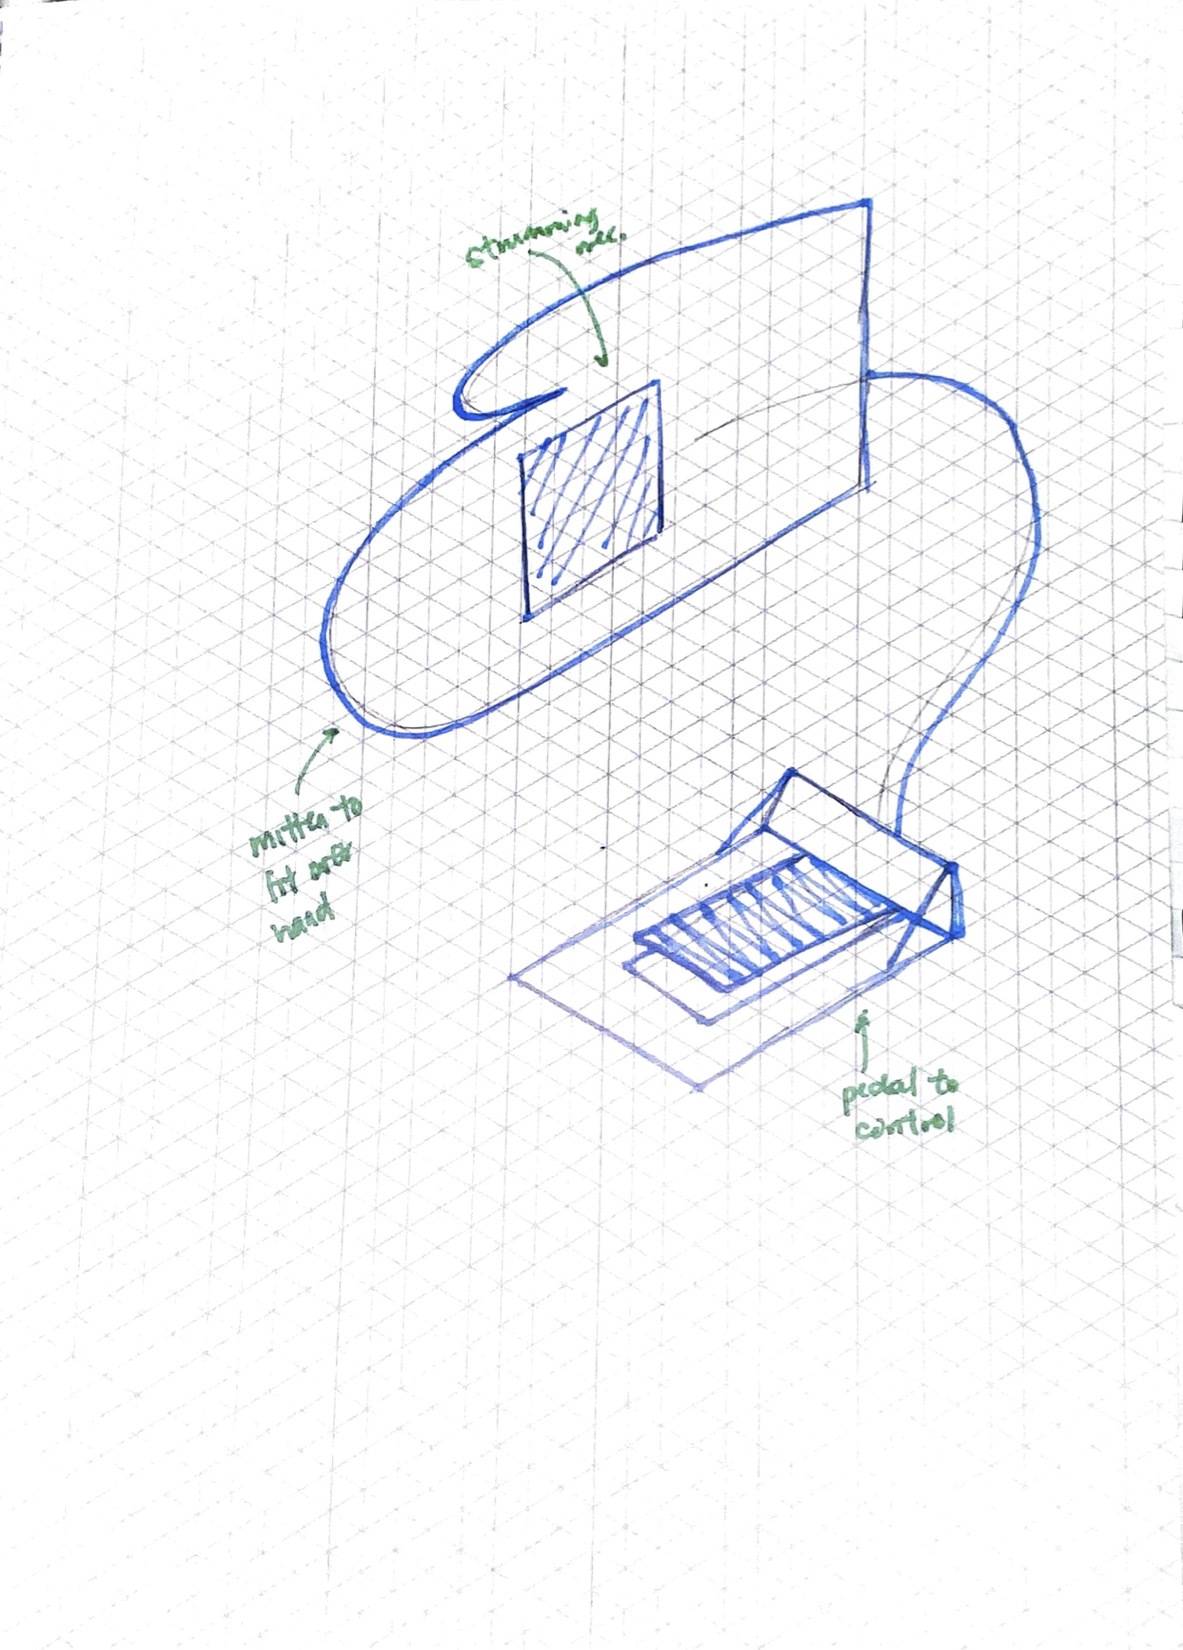 strumming
mec.
mitten to
fit over
hand
pedal to
control